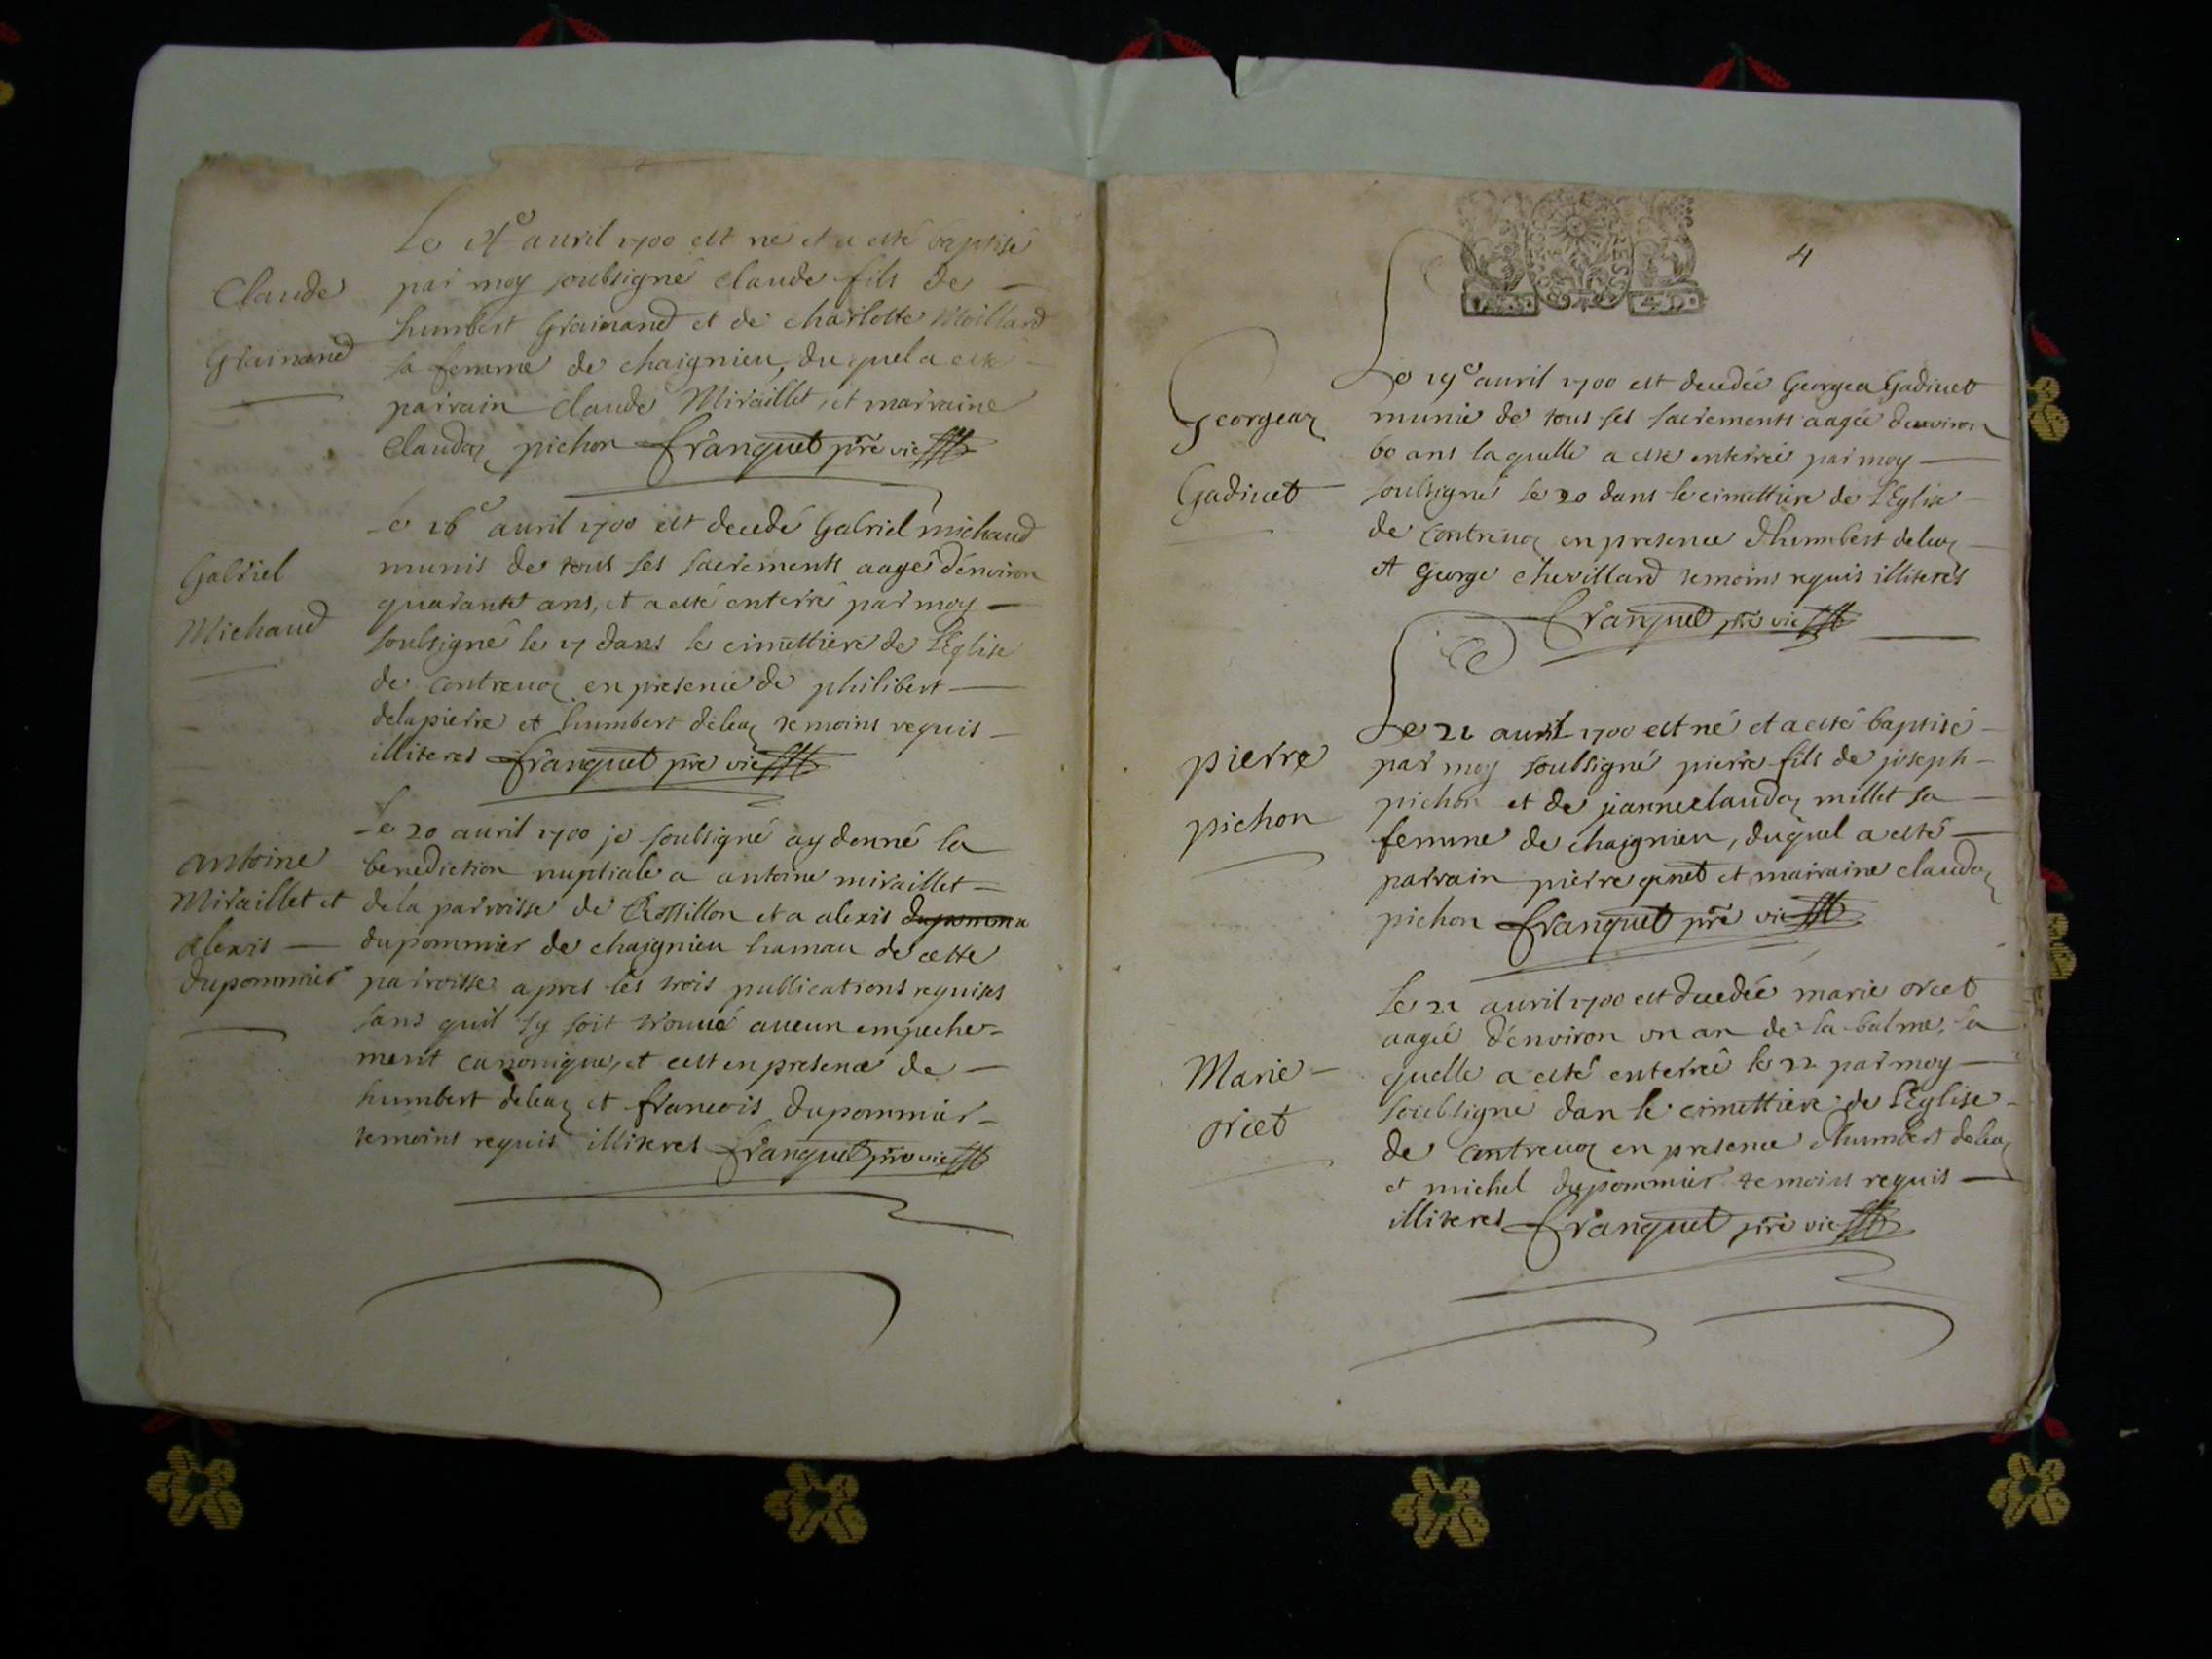 Claude
Grainand
Le 15e auril 1700 est né et a esté baptisé
par moy soubsigné claude fils de
humbert Grainand et de charlotte Moillard
sa femme de chaignieu, du quel a esté
parrain claude Miraillet, et marraine
claudaz pichon franquet pre vic
Gabriel
Michaud
Le 16e auril 1700 est decedé Gabriel michaud
munis de tous ses sacrements aagé d'enuiron
quarante ans, et a esté enterré par moy
soubsigné le 17 dans le cimettiere de l'Eglise
de contreuoz en presence de philibert
delapierre et humbert deleaz temoins requis
illiteres franquet pre vic
antoine
Miraillet et
alexis
dupommier
Le 20 auril 1700 je soubsigné ay donné la
benediction nuptiale a antoine miraillet
de la parroisse de Rossillon et a alexis dupomma
dupommier de chaignieu hamau de cette
parroisse apres les trois publications requises
sans quil sy soit trouué aucun empeche-
ment canonique, et cest en presence de
humbert deleaz et francois dupommier
temoins requis illiteres franquet pre vic
4
Georgeaz
Gadiuet
Le 19e auril 1700 est decedée Georgea Gadiuet
munie de tous ses sacrements aagée denviron
60 ans laquelle a esté enterrée par moy
soubsigné le 20 dans le cimettiere de l'Eglise
de contreuoz en presence d'humbert deleaz
et George chevillard temoins requis illiterés
franquet pre vic
pierre
pichon
Le 21 auril 1700 est né et a esté baptisé
par moy soubsigné pierre fils de joseph
pichon et de jeanneclaudaz millet sa
femme de chaignieu, duquel a esté
parrain pierre genet et marraine claudaz
pichon franquet pre vic
Marie
orcet
Le 21 auril 1700 est decedée marie orcet
aagée d'enuiron un an de la balme, la
quelle a esté enterreé le 22 par moy
soubsigné dan le cimettiere de l'Eglise
de contreuoz en presence d'humbert deleaz
et michel dupommier temoins requis
illiteres franquet pre vic